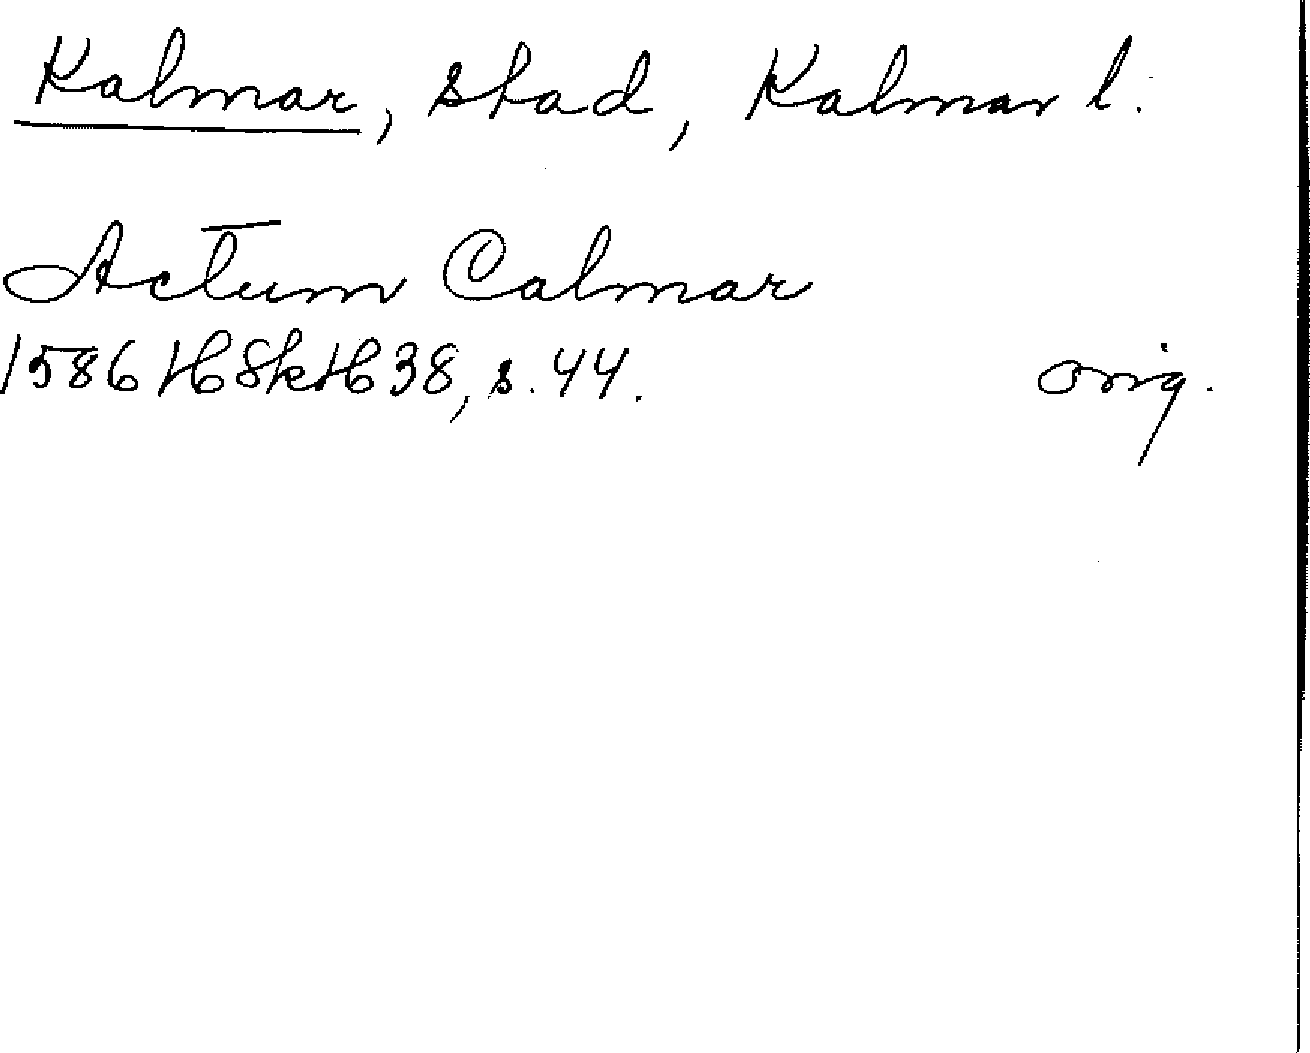 Kalmar, stad, Kalmar l.
Actum Calmar
1586 HSkH 38, s. 44. orig.